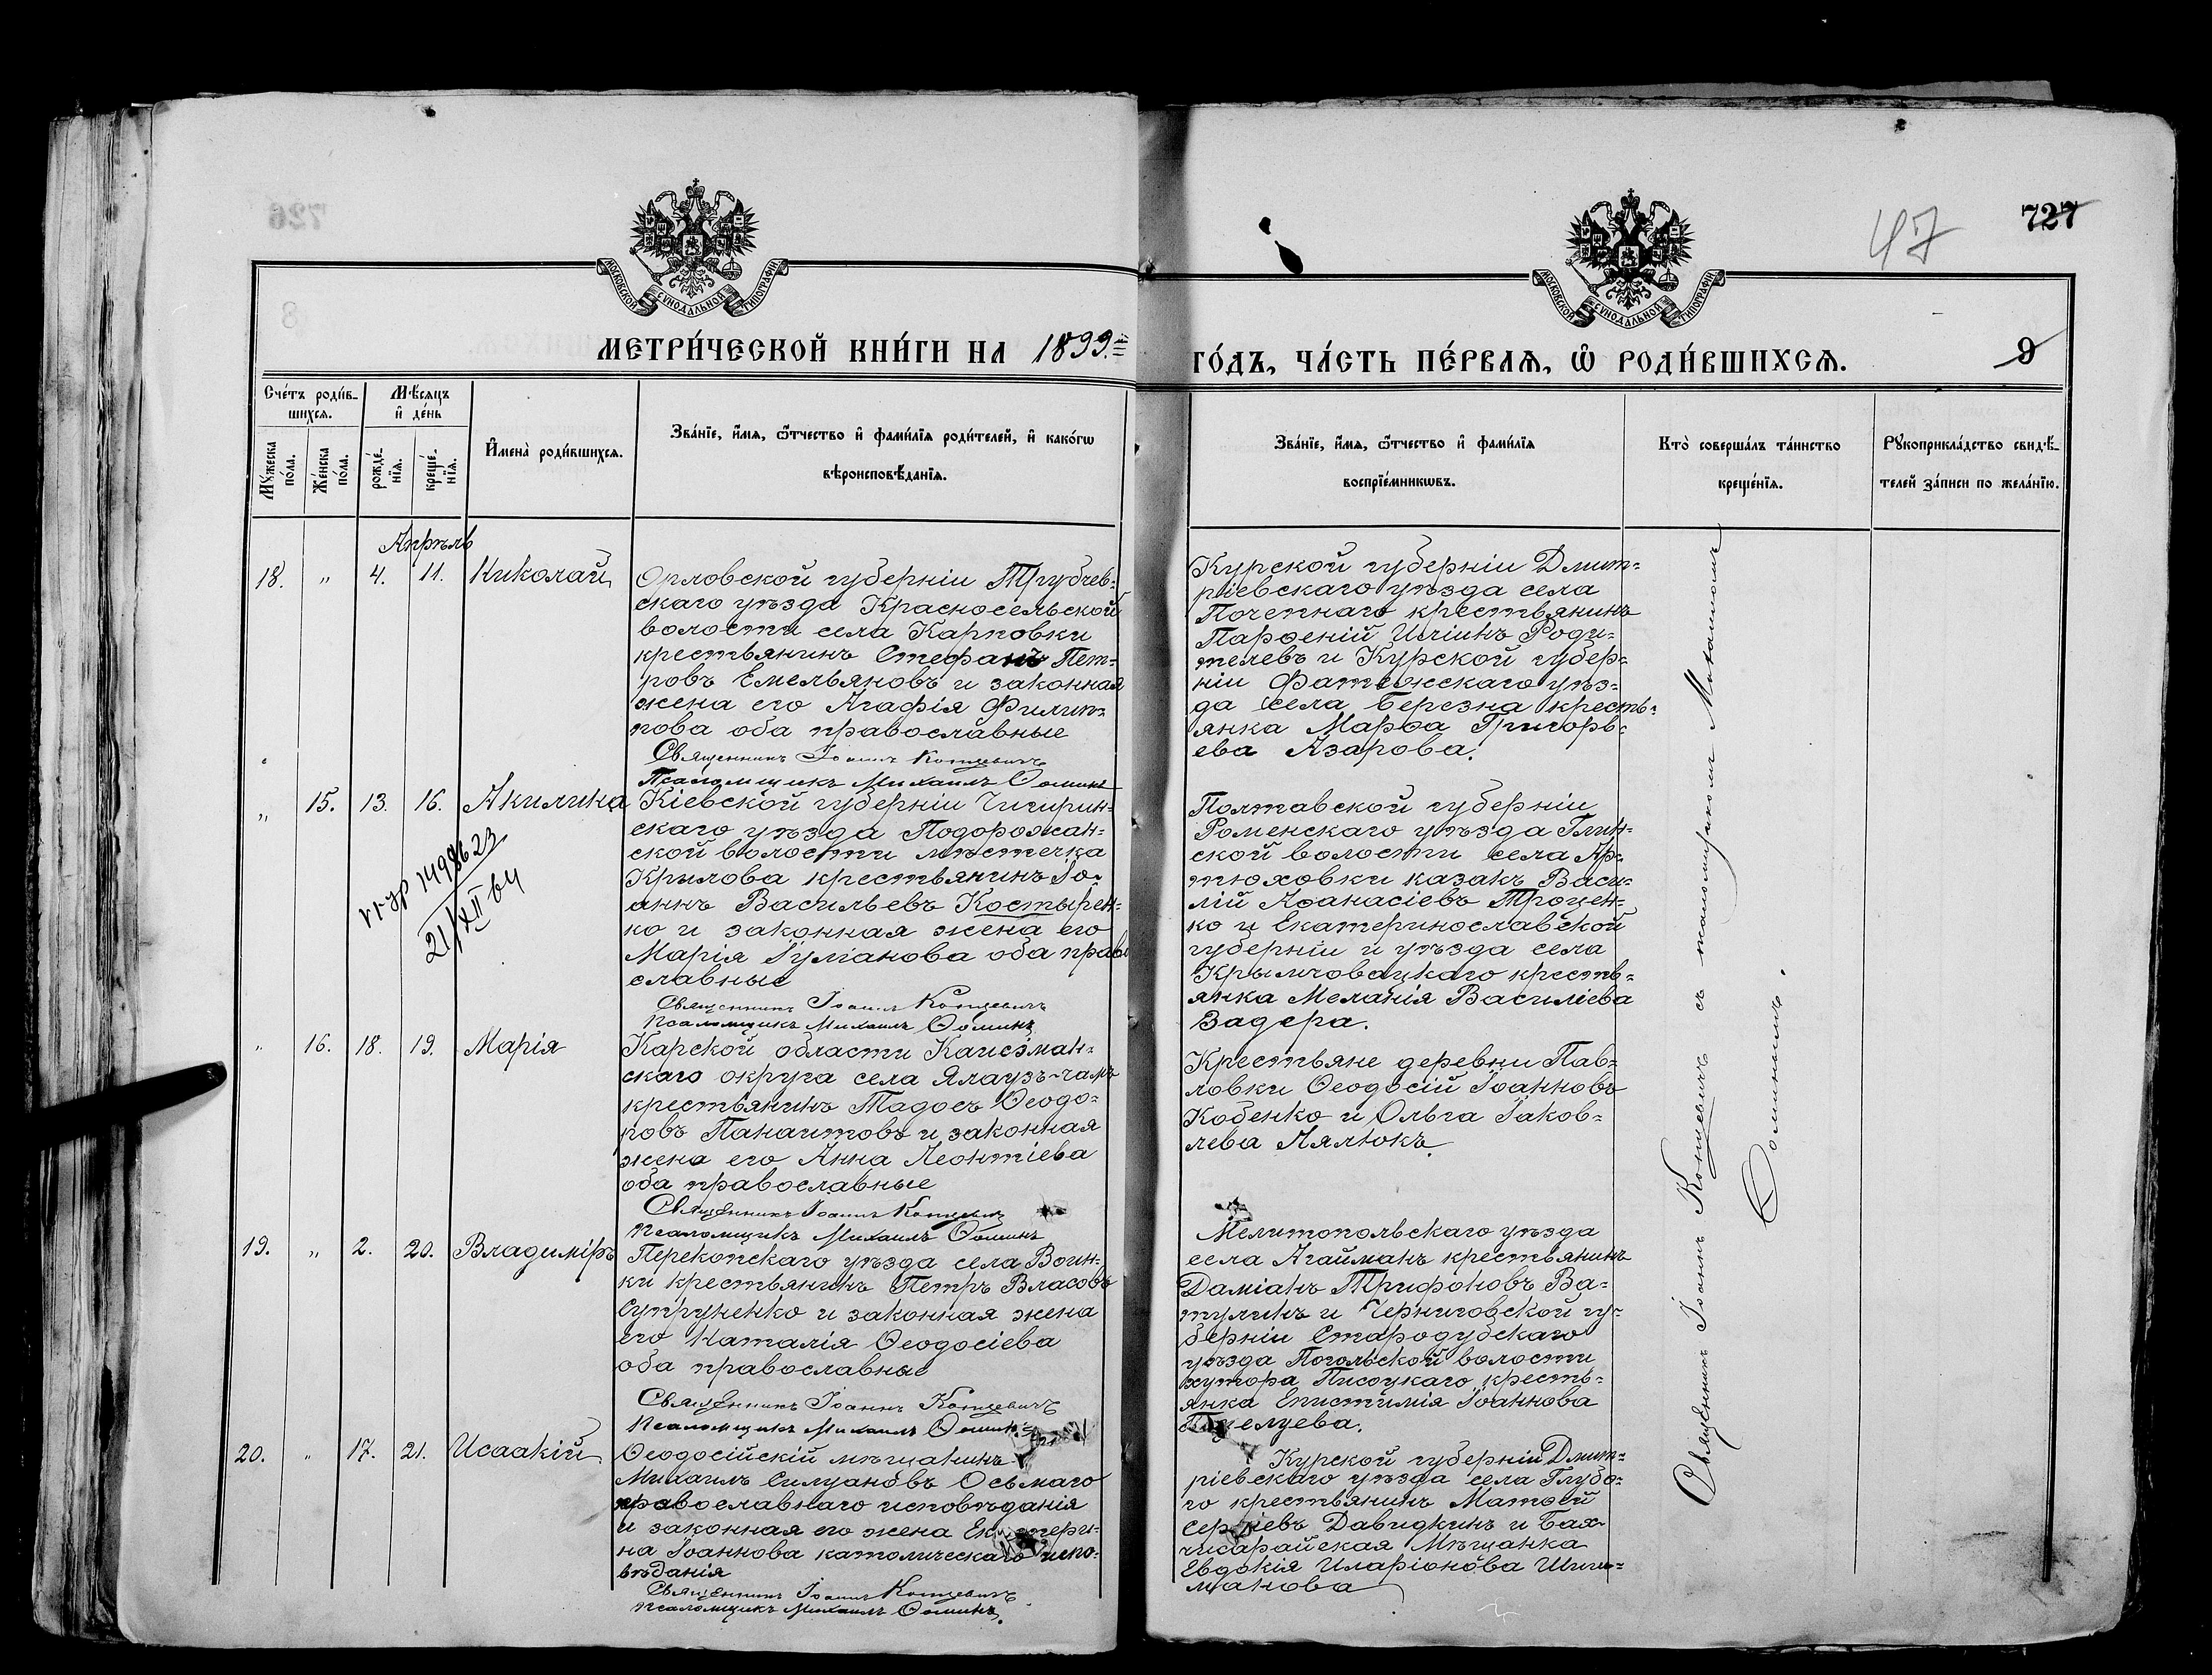 726
727
47
МОСКОВСКОЙ СѴНОДАЛЬНОЙ ТИПОГРАФІИ
МОСКОВСКОЙ СѴНОДАЛЬНОЙ ТИПОГРАФІИ
8
9
МЕТРИ́ЧЕСКОЙ КНИ́ГИ НА 1899.
ГО́ДЪ, ЧА́СТЬ ПЕ́РВАЯ, Ѽ РОДИ́ВШИХСЯ.
Сче́тъ роди́в-
шихся.
Мѣ́сяцъ
и҆ де́нь
Мꙋ́жеска
по́ла.
Же́нска
по́ла.
рожде́-
нїя.
креще́-
нїя.
И҆мена̀ роди́вшихся.
Зва́нїе, и҆́мя, ѻ҆́тчество и҆ фами́лїя роди́телей, и҆ како́гѡ
вѣроисповѣ́данїя.
Зва́нїе, и҆́мя, ѻ҆́тчество и҆ фами́лїя
воспрїе́мникѡвъ.
Кто̀ соверша́лъ та́инство
креще́нїя.
Рꙋкоприкла́дство свидѣ́-
телей за́писи по жела́нїю.
Апрѣль
18. " 4. 11. Николай
Орловской губерніи Трубчев-
скаго уѣзда Красносельской
волости села Карповки
крестьянинъ Стефанъ Пет-
ровъ Емельяновъ и законная
жена его Агафія Филип-
пова оба православные
Священникъ Іоаннъ Котцевичъ
Псаломщикъ Михаилъ Ѳоминъ
Курской губерніи Дмит-
ріевскаго уѣзда села
Почепнаго крестьянинъ
Парѳеній Иліинъ Роди-
телевъ и Курской губер-
ніи Фатежскаго уѣз-
да села Березна кресть-
янка Марѳа Григорь-
ева Азарова.
" 15. 13. 16. Акилина
21/XII 64
Кіевской губерніи Чигирин-
скаго уѣзда Подорожан-
ской волости мѣстечка
Крылова крестьянинъ Іо-
аннъ Васильевъ Костырен-
ко и законная жена его
Марія Іуліанова оба право
славные
Священникъ Іоаннъ Котцевичъ
Псаломщикъ Михаилъ Ѳоминъ
Полтавской губерніи
Роменскаго уѣзда Глин-
ской волости села Ар-
тюховки казакъ Васи-
лій Аѳанасіевъ Троцен-
ко и Екатеринославской
губерніи и уѣзда села
кресть-
янка Меланія Василіева
Задера.
" 16. 18. 19. Марія
Карской области Кагизман-
скаго округа села Ялаузъ-чамъ
крестьянинъ Тадосъ Ѳеодо-
ровъ Панаитовъ и законная
жена его Анна Леонтіева
оба православные
Священникъ Іоаннъ Котцевичъ
Псаломщикъ Михаилъ Ѳоминъ
Крестьяне деревни Пав-
ловки Ѳеодосій Іоанновъ
Кобенко и Ольга Іаков-
лева Лялюкъ.
19. " 2. 20. Владиміръ
Перекопскаго уѣзда села Воин-
ки крестьянинъ Петръ Власовъ
Супруненко и законная жена
его Наталія Ѳеодосіева
оба православные
Священникъ Іоаннъ Котцевичъ
Псаломщикъ Михаилъ Ѳоминъ
Мелитопольскаго уѣзда
села Агайманъ крестьянинъ
Даміанъ Трифоновъ Ва-
тулинъ и Черниговской гу-
берніи Стародубскаго
уѣзда Погольской волости
хутора Писоцкаго кресть-
янка Епистимія Іоаннова
20. " 17. 21. Исаакій
Ѳеодосійскій мѣщанинъ
Михаилъ Силуановъ Осьмаго
православнаго исповѣданія
и законная его жена Екатери-
на Іоаннова католическаго испо-
вѣданія
Священникъ Іоаннъ Котцевичъ
Псаломщикъ Михаилъ Ѳоминъ.
Курской губерніи Дмит-
ріевскаго уѣзда села Глубо-
го крестьянинъ Матѳей
Сергѣевъ Давидкинъ и Бах-
чисарайская Мѣщанка
Евдокія Иларіонова Шиш-
манова
Священникъ Іоаннъ Котцевичъ съ псаломщикомъ Михаиломъ
Ѳоминымъ.